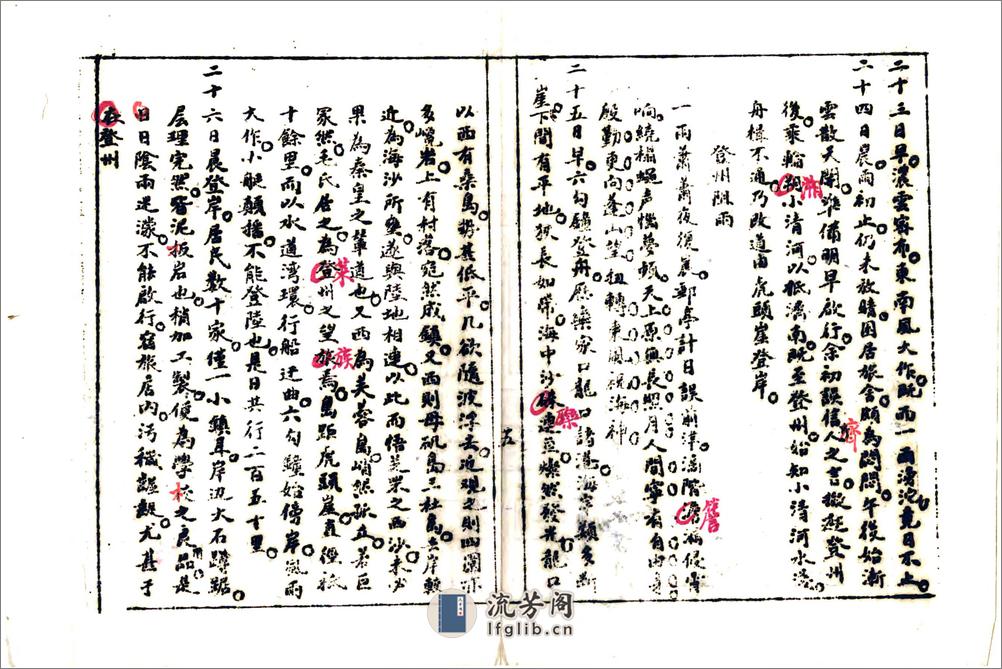 二十三日早濃雲密布東南風大作既而一雨滂沱竟日不止
二十四日晨雨初止仍未放晴困居旅舍頗為悶悶午後始漸
雲散天開準備明早啟行余初誤信人之言擬登州
後乘輪溯小清河以抵濟南既至登州始知小清河水淺
舟楫不通乃改道由虎頭崖登岸
登州阻雨
一雨蕭蕭後復晨郵亭計日誤前津滴階簷
响繞榻蠅声惱夢頻天上原無長照月人間寧有自由身
殷勤更向蓬山望扭轉東開視海神
二十五日早六句鐘登舟歷欒家口龍口諸港海岸類多斷
崖下間有平地狹長如帶海中沙礫連亘燦然發光龍口
以西有桑島勢甚低平几欲隨波浮去近視之則四圍亦
多巉岩上有村落窕然成鎮又西則母矶島三杜島去岸較
近為海沙所壅遂與陸地相連以此而悟芝罘之西沙未必
果為秦皇之輦道也又西為芙蓉島峭然孤立若巨
冢然毛氏居之為萊州之望族焉島距虎頭崖直徑祇
十餘里而以水道湾環行船迂曲六句鐘始傍岸風雨
大作小艇顛播不能登陸也是日共行二百五十里
二十六日晨登岸居民数十家僅一小鎮耳岸边大石蹲踞
层理完然皆泥板岩也稍加工製便為學校之良品是
日陰雨迷濛不能啟行宿旅店內污穢齷齪尤甚于
在登州
五
溯
齊
簷
礫
萊
族
板
校
流芳阁
lfglib.cn